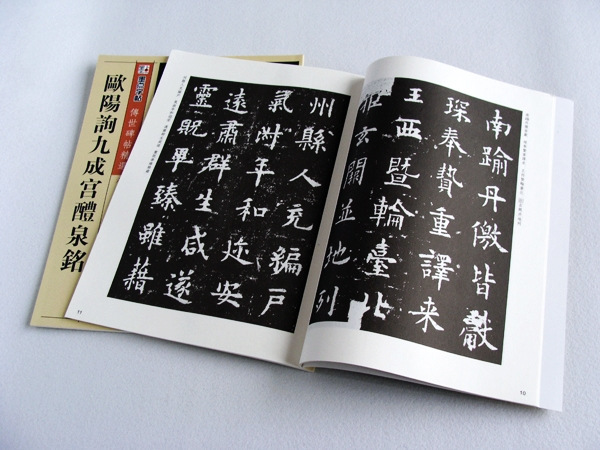 歐陽詢九成宫醴泉銘
傳世碑帖精
南踰丹儌皆獻
琛奉贄重譯來
王西暨輪臺北
玄闕並地列
10
州縣人充編戶
氣淑年和迩安
遠肅群生咸遂
靈貺畢臻雖藉
11